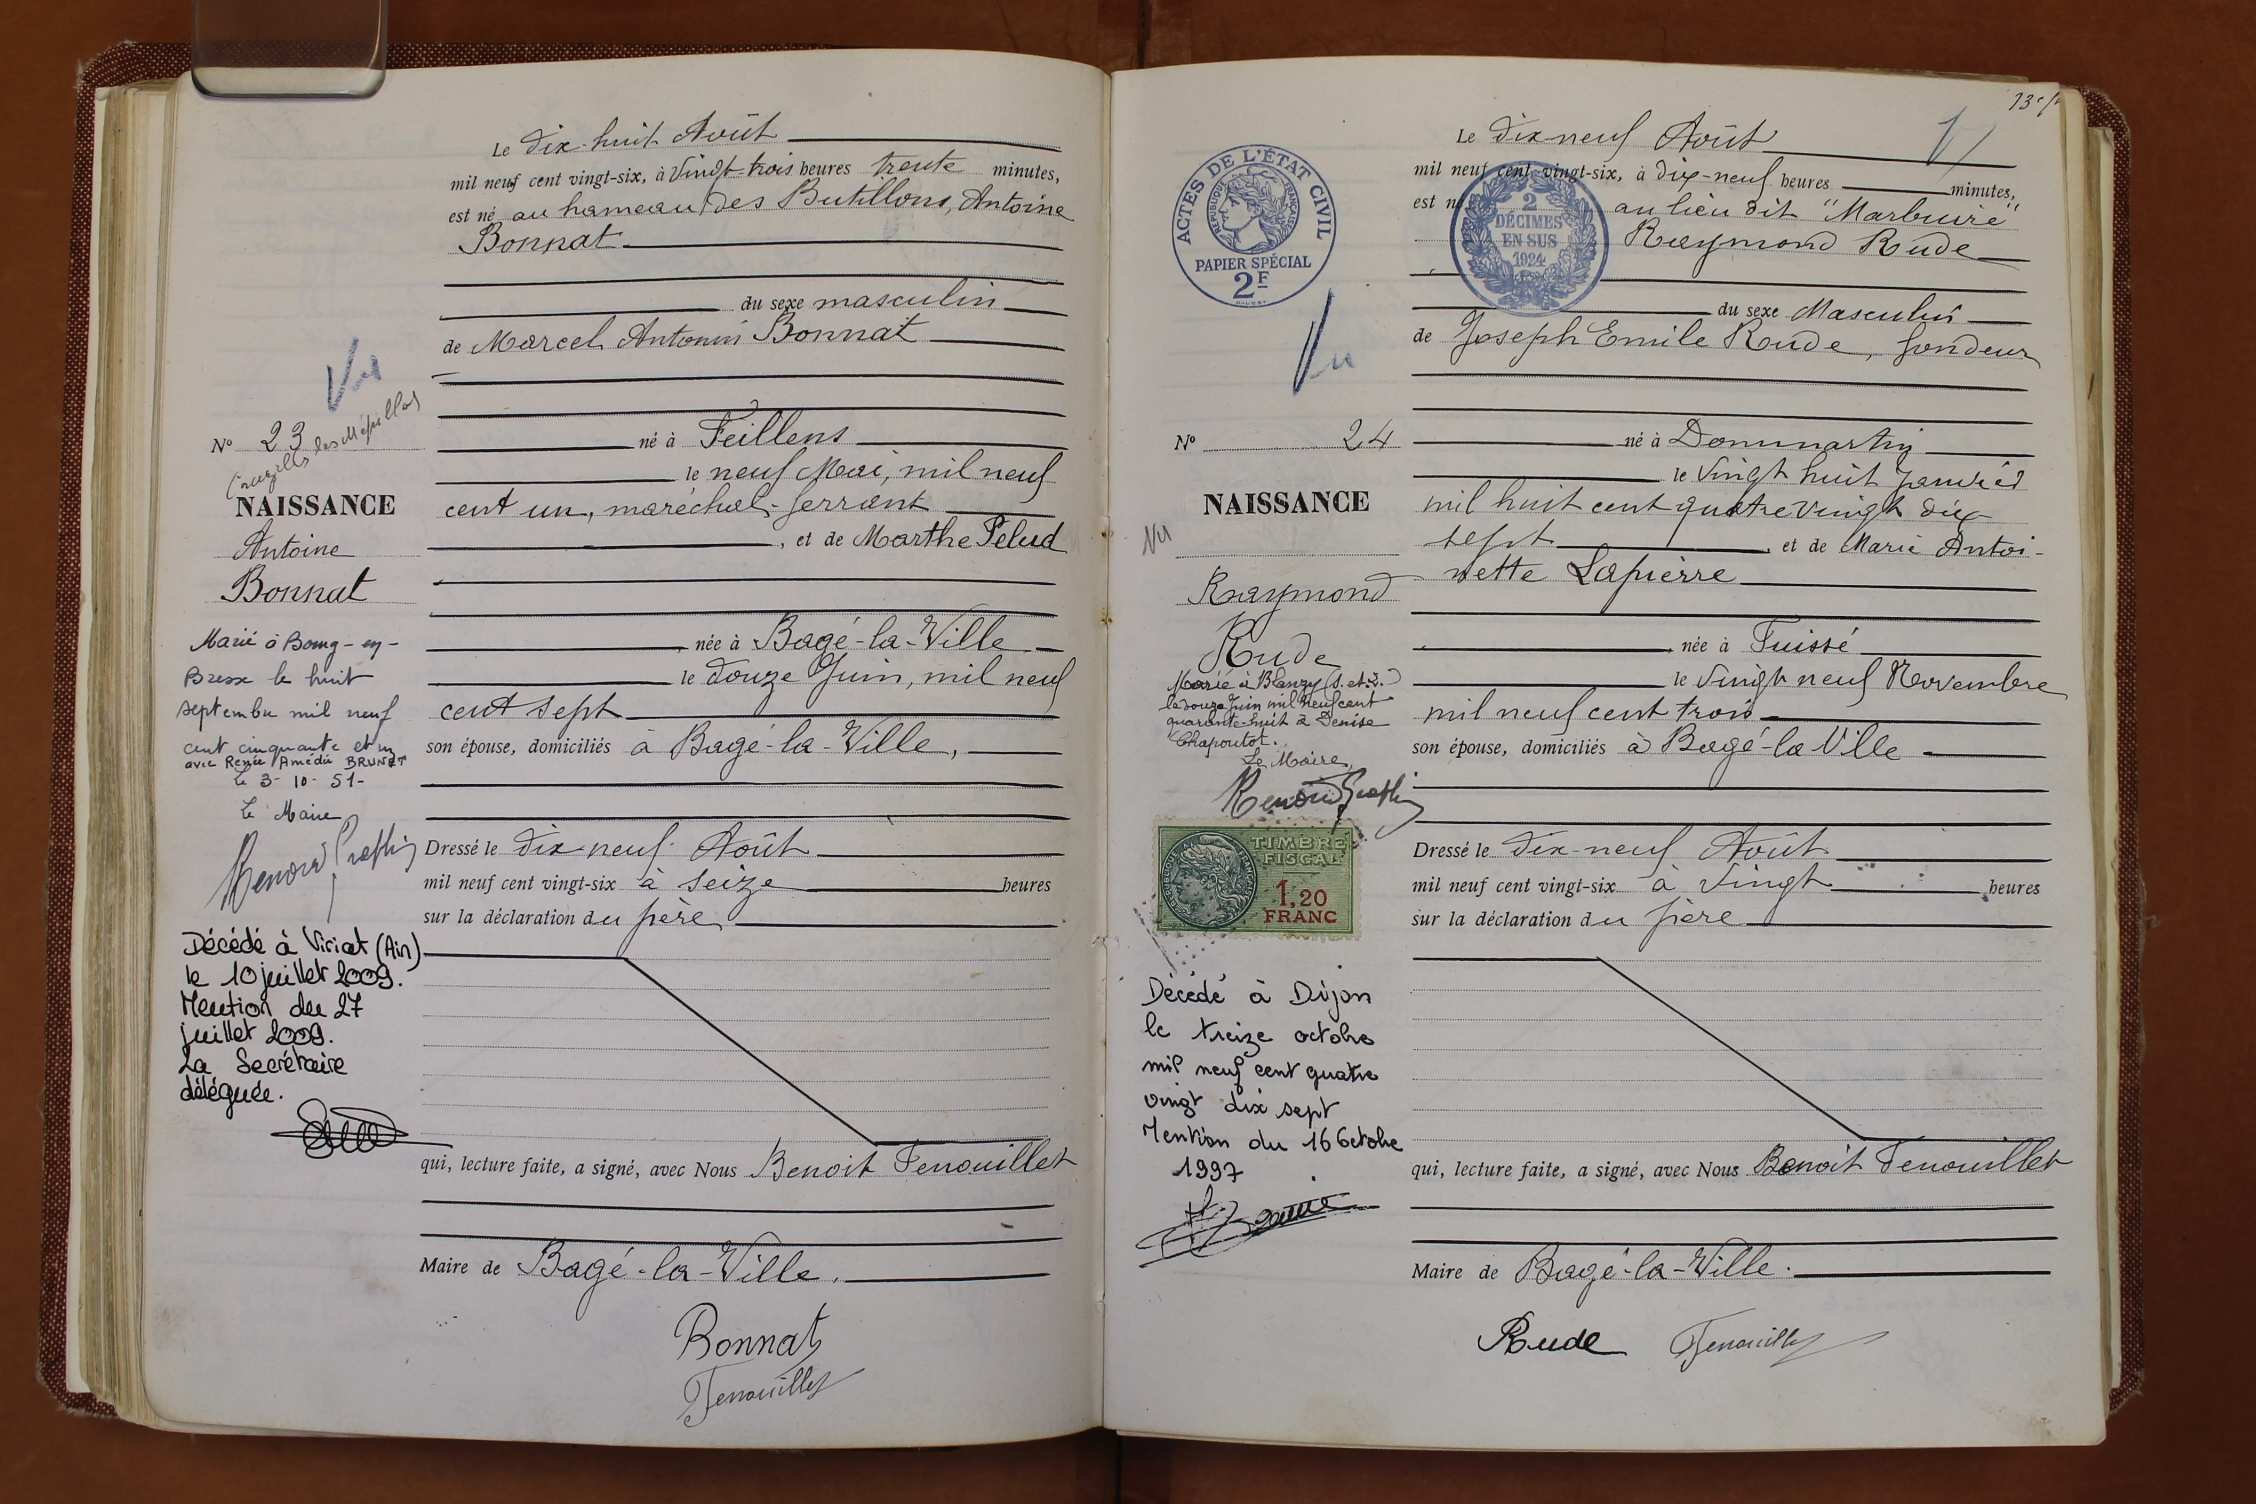 Le dix-huit Août
mil neuf cent vingt-six, à vingt-trois heures trente minutes,
est né au hameau des Butillons, Antoine
Bonnat
du sexe masculin
de Marcel Antonin Bonnat
né à Feillens
le neuf Mai, mil neuf
cent un, maréchal-ferrant
, et de Marthe Pelud
née à Bagé-la-Ville
le douze Juin, mil neuf
cent sept
son épouse, domiciliés à Bagé-la-Ville,
Dressé le dix-neuf Août
mil neuf cent vingt-six à seize heures
sur la déclaration du père
qui, lecture faite, a signé, avec Nous Benoit Fenouillet
Maire de Bagé-la-Ville.
Bonnat
Fenouillet
Vu
N° 23
Cruzilles les Mépillat
NAISSANCE
Antoine
Bonnat
Marié à Bourg-en-
Bresse le huit
septembre mil neuf
cent cinquante et un
avec Renée Amédée BRUNET
Le 3-10-51-
Le Maire
Décédé à Viriat (Ain)
le 10 juillet 2009.
Mention du 27
juillet 2009.
La Secrétaire
déléguée.
Le dix-neuf Août
mil neuf cent vingt-six, à dix-neuf heures minutes,
est né au lieu dit "Marbuire"
Raymond Rude
du sexe Masculin
de Joseph Emile Rude, fondeur
né à Dommartin
le vingt huit Janvier
mil huit cent quatre vingt dix
sept , et de Marie Antoi-
nette Lapierre
née à Fuissé
le vingt neuf Novembre
mil neuf cent trois
son épouse, domiciliés à Bagé-la Ville
Dressé le dix-neuf Août
mil neuf cent vingt-six à vingt heures
sur la déclaration du père
qui, lecture faite, a signé, avec Nous Benoit Fenouillet
Maire de Bagé-la-Ville.
Rude Fenouillet
ACTES DE L'ÉTAT CIVIL
RÉPUBLIQUE FRANÇAISE
PAPIER SPÉCIAL
2F
2
DÉCIMES
EN SUS
1924
Vu
N° 24
NAISSANCE
Vu
Raymond
Rude
Marié à Blanzy (S. et L.)
le douze Juin mil neuf cent
quarante-huit à Denise
Chapoutot.
Le Maire,
TIMBRE
FISCAL
1,20
FRANC
Décédé à Dijon
le treize octobre
mil neuf cent quatre
vingt dix sept
Mention du 16 Octobre
1997